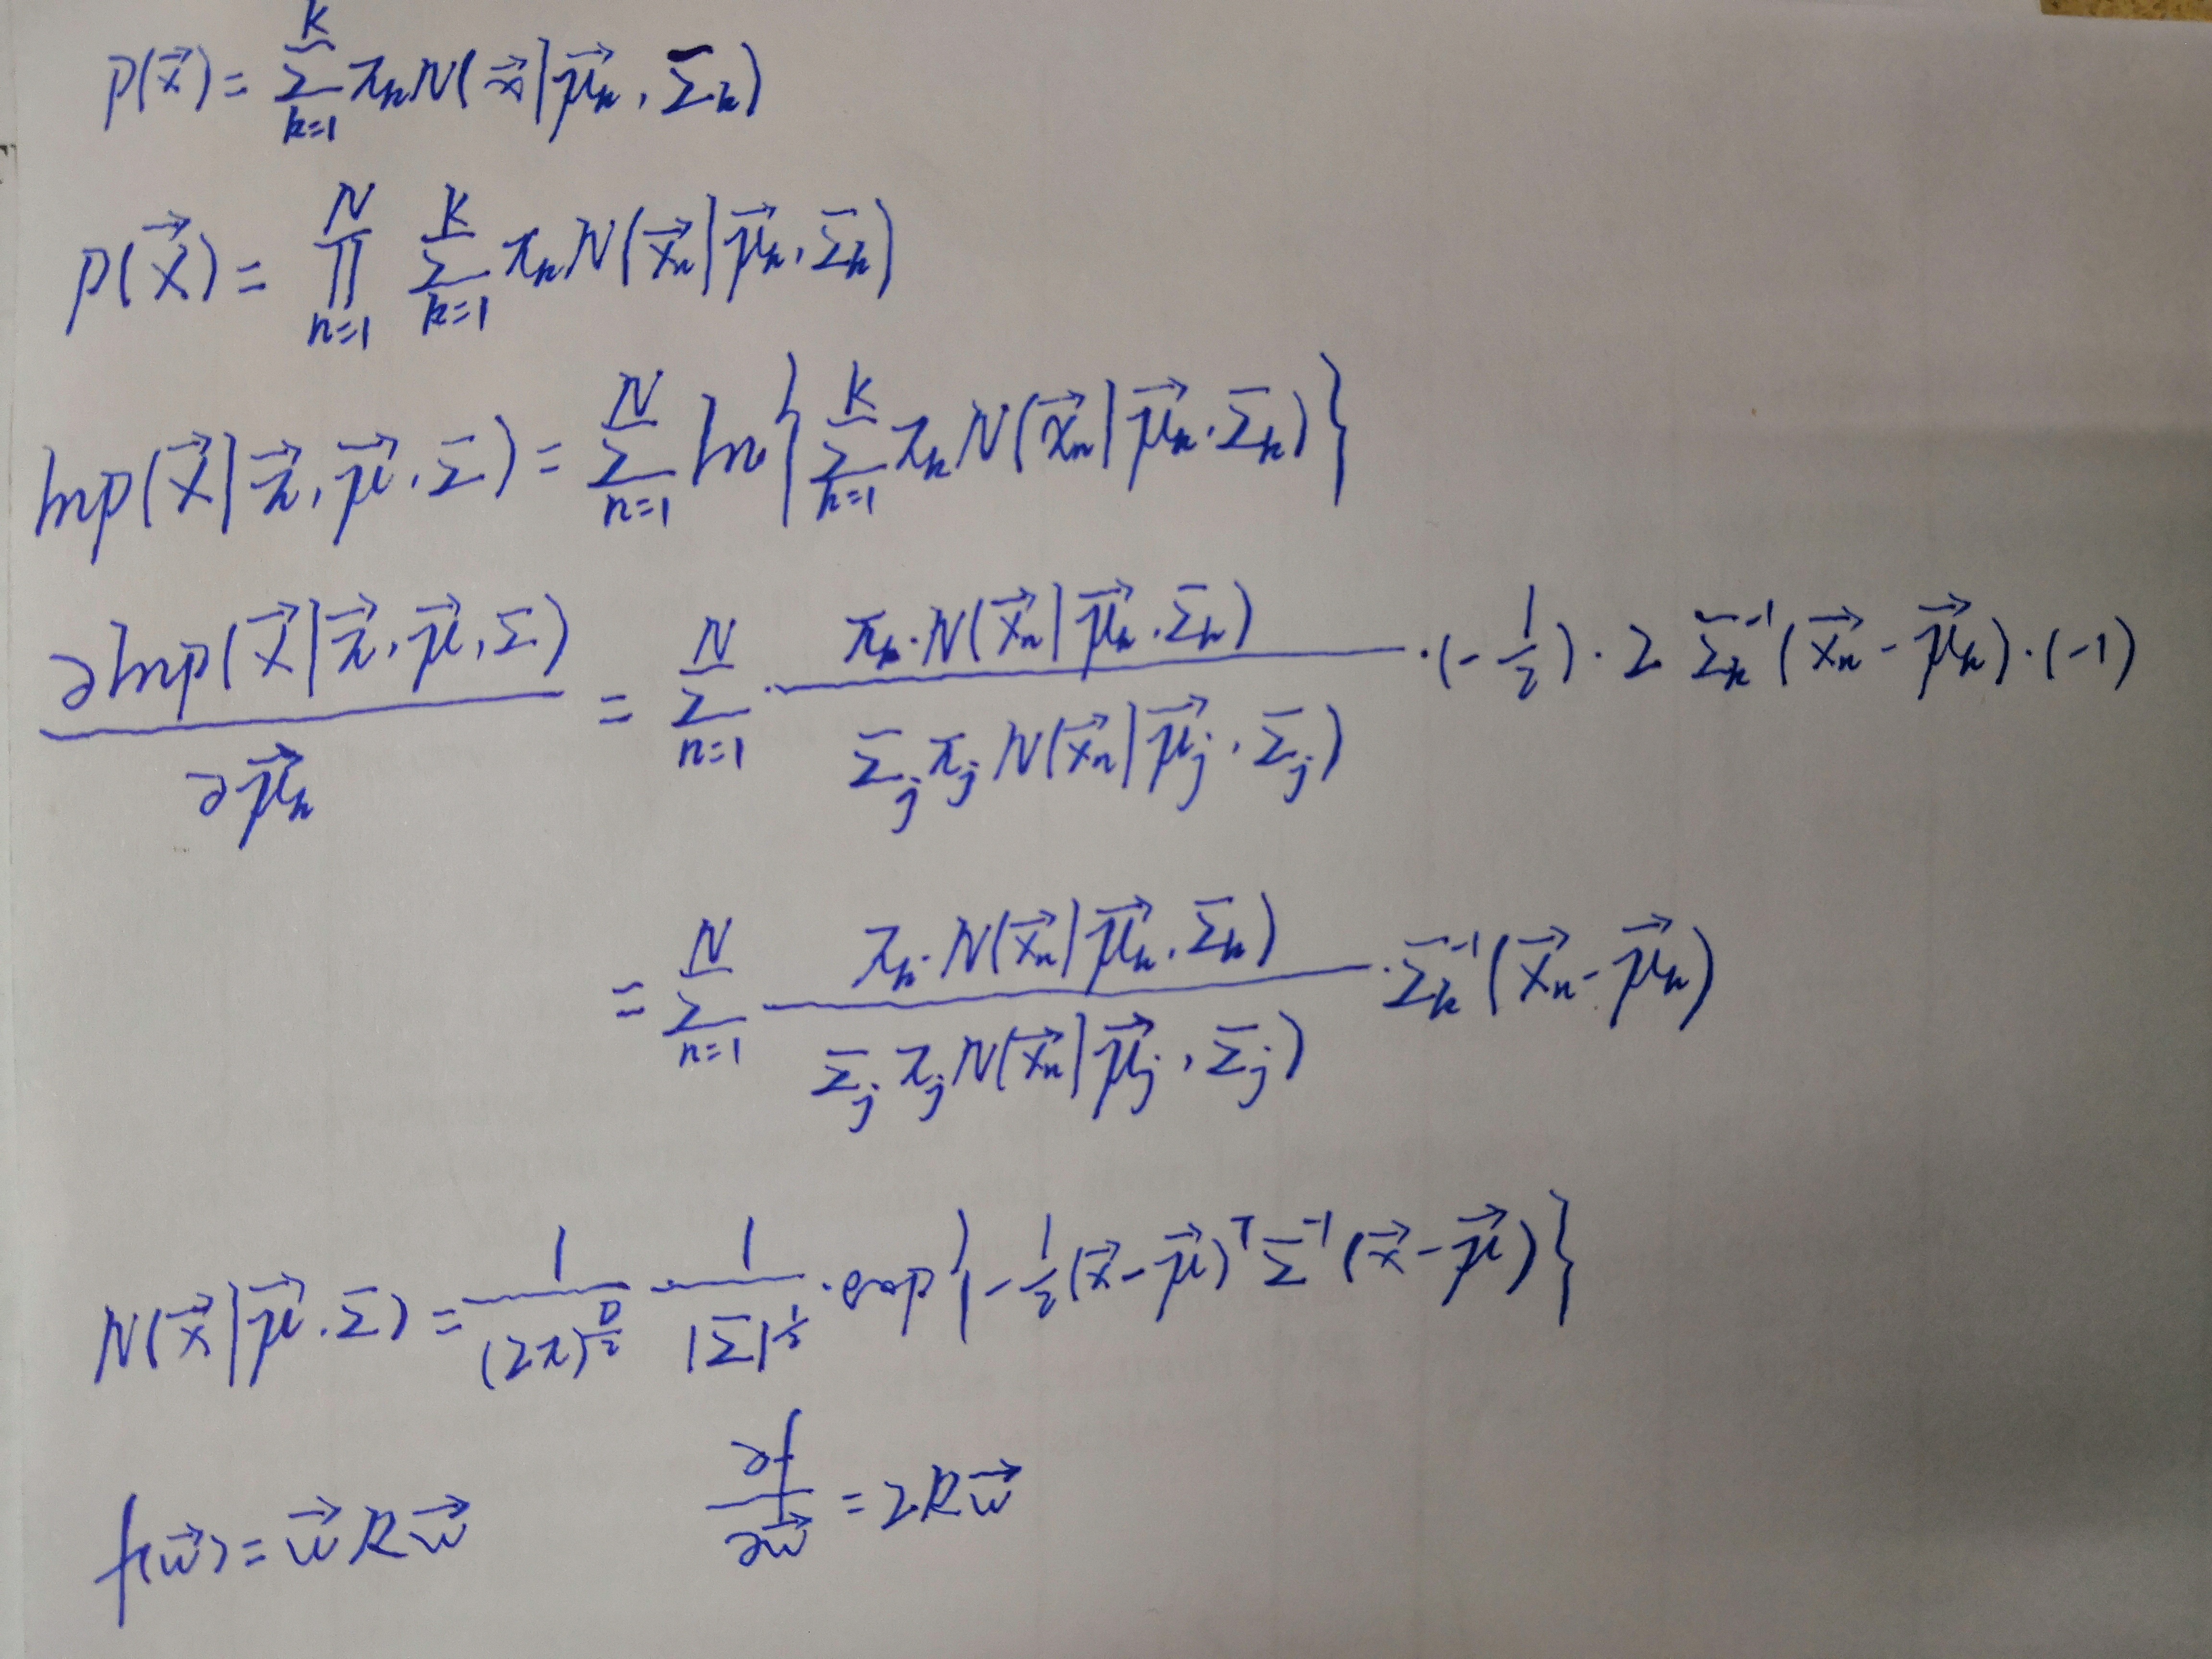 p(x⃗) = ∑_{k=1}^{K} π_k N(x⃗ | μ⃗_k, Σ_k)
p(X⃗) = ∏_{n=1}^{N} ∑_{k=1}^{K} π_k N(x⃗_n | μ⃗_k, Σ_k)
ln p(X⃗ | π⃗, μ⃗, Σ) = ∑_{n=1}^{N} ln { ∑_{k=1}^{K} π_k N(x⃗_n | μ⃗_k, Σ_k) }
∂ ln p(X⃗ | π⃗, μ⃗, Σ) / ∂μ⃗_k = ∑_{n=1}^{N} · π_k · N(x⃗_n | μ⃗_k, Σ_k) / Σ_j π_j N(x⃗_n | μ⃗_j, Σ_j) · (-1/2) · 2 Σ_k^{-1} (x⃗_n - μ⃗_k) · (-1)
= ∑_{n=1}^{N} π_k · N(x⃗_n | μ⃗_k, Σ_k) / Σ_j π_j N(x⃗_n | μ⃗_j, Σ_j) · Σ_k^{-1} (x⃗_n - μ⃗_k)
N(x⃗ | μ⃗, Σ) = 1/(2π)^{D/2} · 1/|Σ|^{1/2} · exp{ -1/2 (x⃗ - μ⃗)^T Σ^{-1} (x⃗ - μ⃗) }
f(w⃗) = w⃗ R w⃗ ∂f/∂w⃗ = 2Rw⃗